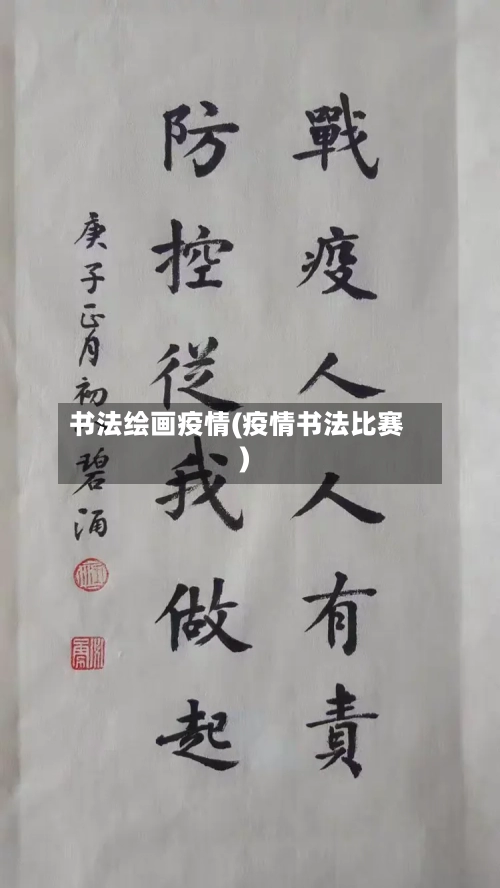 戰疫人人有責
防控從我做起
庚子正月初
碧涌
书法绘画疫情(疫情书法比赛
)